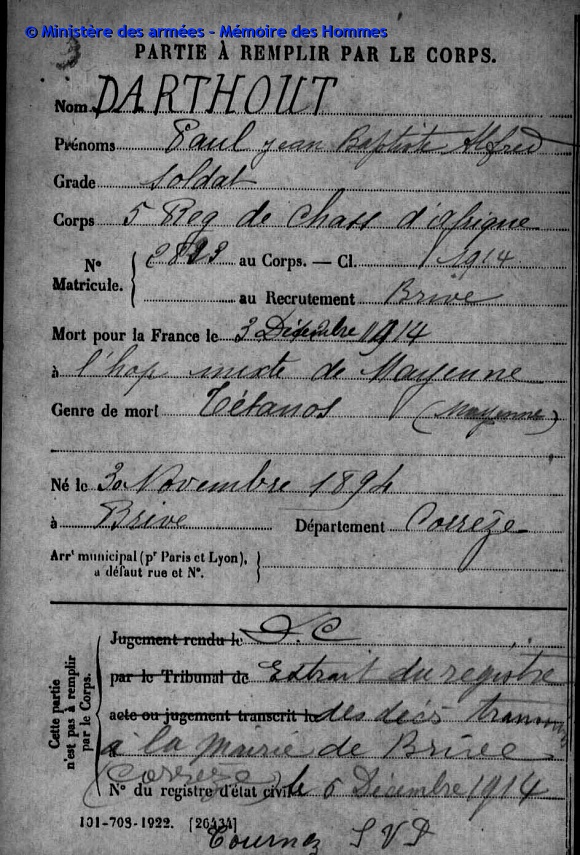 © Ministère des armées - Mémoire des Hommes
PARTIE À REMPLIR PAR LE CORPS.
Nom DARTHOUT
Prénoms Paul jean Baptiste Alfred
Grade soldat
Corps 5 Reg de Chass d'afrique
N° Matricule. { au Corps. — Cl. 1914
au Recrutement Brive
Mort pour la France le 3 Décembre 1914
à l'hop mixte de Mayenne
Genre de mort Tétanos (Mayenne)
Né le 30 Novembre 1894
à Brive Département Corrèze
Arrt municipal (pr Paris et Lyon), à défaut rue et N°. }
Cette partie n'est pas à remplir par le Corps.
Jugement rendu le D.C
par le Tribunal de Extrait du registre
acte ou jugement transcrit le des décès transmis
à la Mairie de Brive
(Corrèze)
N° du registre d'état civil le 6 Décembre 1914
101-708-1922. [26434]
Tournez S V P